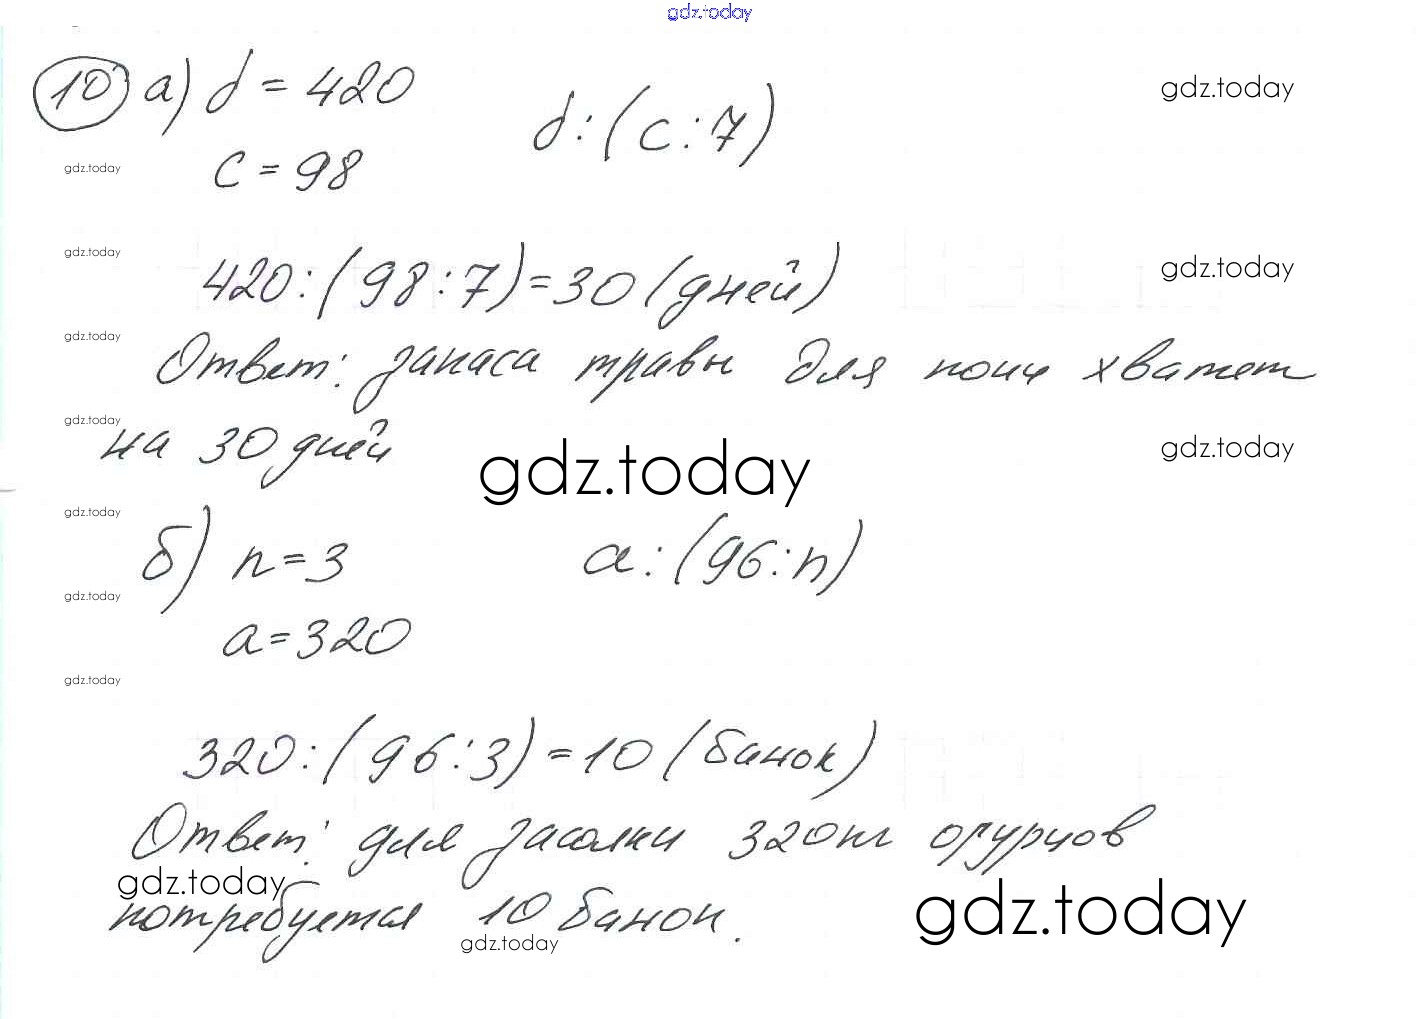 gdz.today
10 а) d = 420
d:(c:7)
gdz.today
c = 98
gdz.today
gdz.today
420:(98:7)=30 (дней)
gdz.today
gdz.today
Ответ: запаса травы для пони хватет
gdz.today
на 30 дней
gdz.today
gdz.today
gdz.today
б) n=3
a:(96:n)
gdz.today
a=320
gdz.today
320:(96:3)=10 (банок)
Ответ: для засолки 320кг огурцов
gdz.today
потребуется 10 банок.
gdz.today
gdz.today